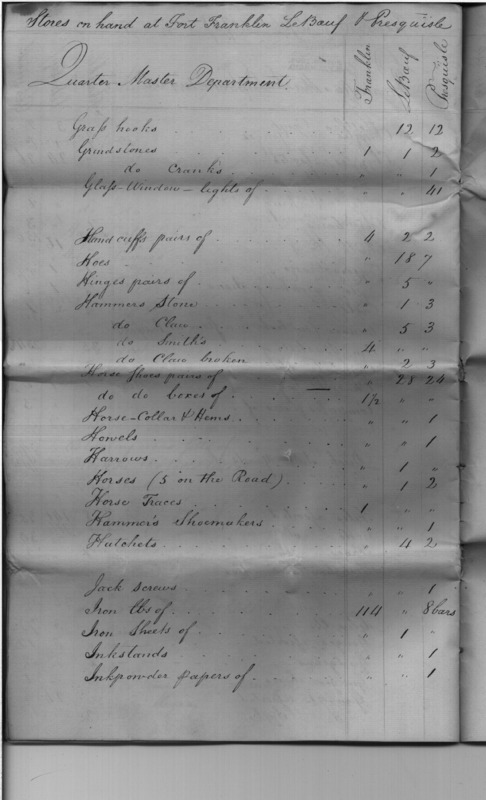 Stores on hand at Fort Franklin LeBœuf & Presquisle
Quarter Master Department. Franklin LeBœuf Presquisle
Grass hooks . . . . 12 12
Grindstones . . . . 1 1 2
do Cranks . . . . " " 1
Glass-Window-lights of . . . . " " 41
Hand cuffs pairs of . . . . 4 2 2
Hoes . . . . " 18 7
Hinges pairs of . . . . " 5 "
Hammers Stone . . . . " 1 3
do Claw . . . . " 5 3
do Smiths . . . . 4 " "
do Claw broken . . . . " 2 3
Horse Shoes pairs of . . . . " 28 24
do do boxes of . . . . 1½ " "
Horse-Collar & Hems . . . . " " 1
Howels . . . . " " 1
Harrows . . . . " 1 "
Horses (5 on the Road) . . . . " 1 2
Horse Traces . . . . 1 " "
Hammers Shoemakers . . . . " " 1
Hatchets . . . . " 4 2
Jack screws . . . . " " 1
Iron lbs of . . . . 114 " 8 bars
Iron Sheets of . . . . " 1 "
Inkstands . . . . " " 1
Inkpowder papers of . . . . " " 1